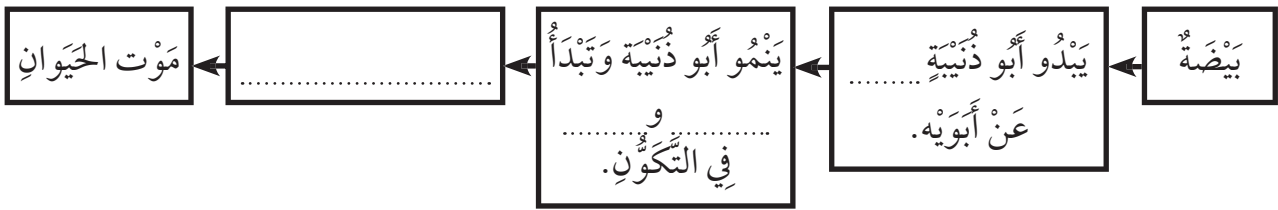 بَيْضَةٌ
يَبْدُو أَبُو ذُنَيْبَةٍ .........
عَنْ أَبَوَيْه.
يَنْمُو أَبُو ذُنَيْبَة وَتَبْدَأُ
............. و ...........
فِي التَّكَوُّنِ.
................................
مَوْت الحَيَوانِ